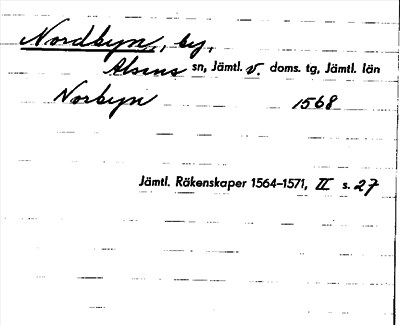 Nordbyn, by,
Alsens sn, Jämtl. v. doms. tg, Jämtl. län
Norbyn 1568
Jämtl. Räkenskaper 1564–1571, II s. 27